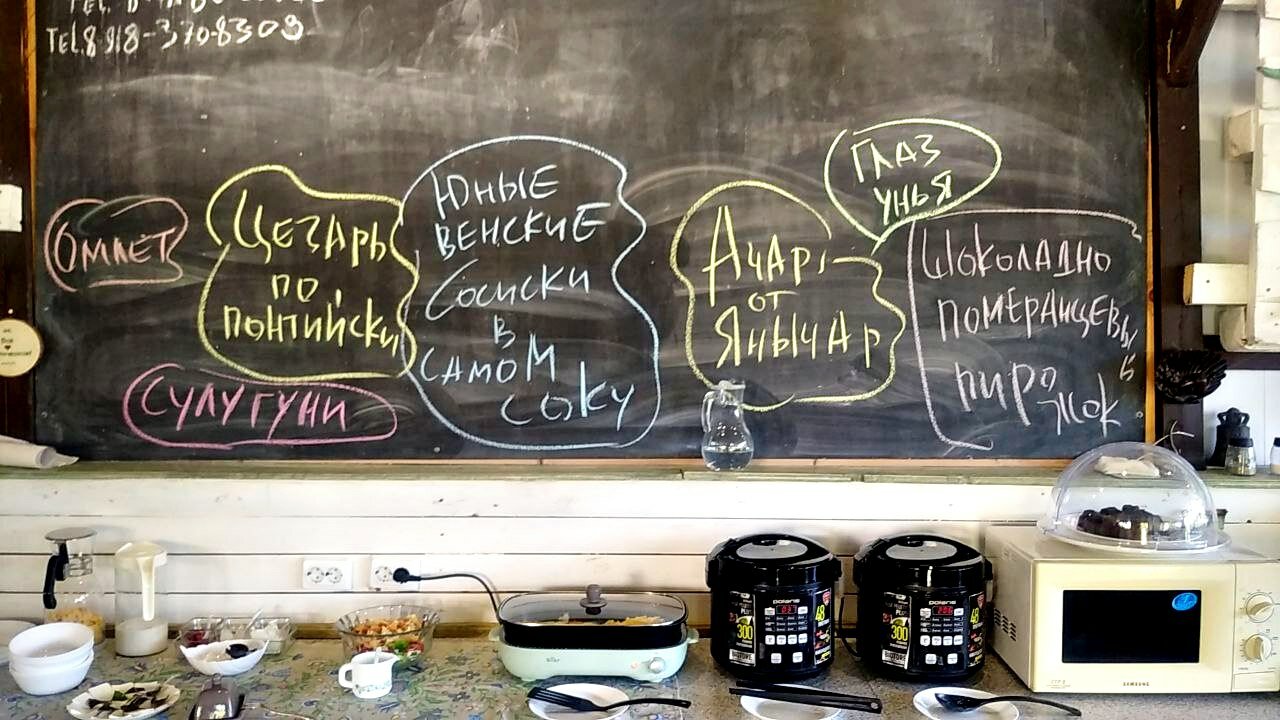 Tel. 8 918-370-8309
Омлет
Цезарь
по
понтийски
Сулугуни
Юные
Венские
Сосиски
в
самом
соку
Ачар,
от
Янычар
Глаз
унья
Шоколадно
померанцевы
й
пиро
жок
polaris
300
48
polaris
300
48
SAMSUNG